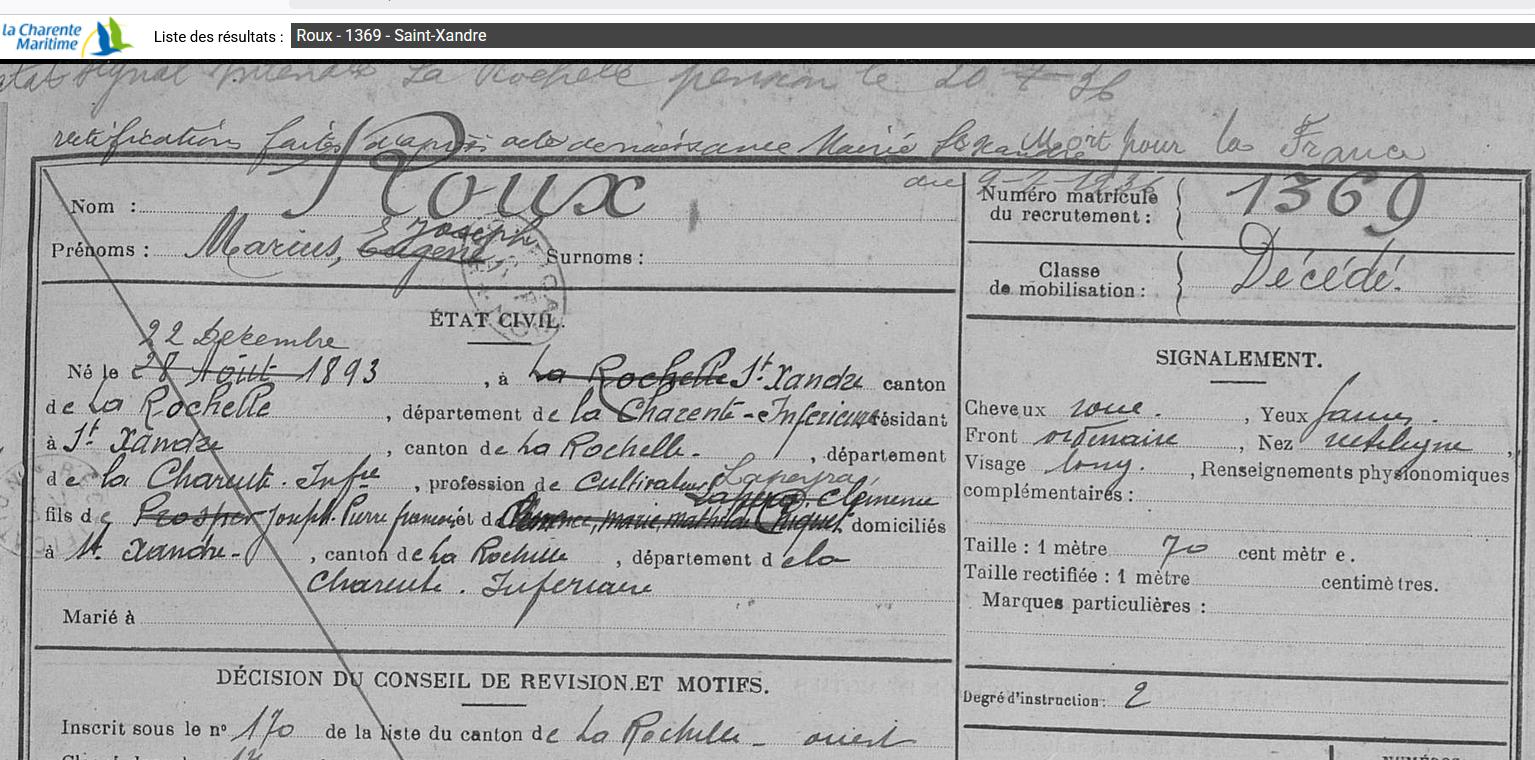 la Charente
Maritime
Liste des résultats : Roux - 1369 - Saint-Xandre
signal La Rochelle pension le 20
rectifications faites d'après acte de naissance Mairie St Xandre
Mort pour la France
du
Nom : Roux
Numéro matricule
du recrutement : 1369
Joseph
Prénoms : Marius, Eugène Surnoms :
Classe
de mobilisation : Décédé.
ÉTAT CIVIL.
22 Décembre
Né le 28 Août 1893, à La Rochelle St Xandre canton
de La Rochelle, département de la Charente-Inférieure résidant
à St Xandre, canton de La Rochelle, département
de la Charente Infre, profession de Cultivateur
Clémence
fils de Prosper Joseph Pierre françois et de domiciliés
à St Xandre, canton de La Rochelle, département de la
Charente Inférieure
Marié à
SIGNALEMENT.
Cheveux, Yeux
Front ordinaire, Nez rectiligne,
Visage long., Renseignements physionomiques
complémentaires :
Taille : 1 mètre 70 cent mètr e.
Taille rectifiée : 1 mètre centimè tres.
Marques particulières :
Degré d'instruction : 2
DÉCISION DU CONSEIL DE REVISION.ET MOTIFS.
Inscrit sous le nº 170 de la liste du canton de La Rochelle - ouest